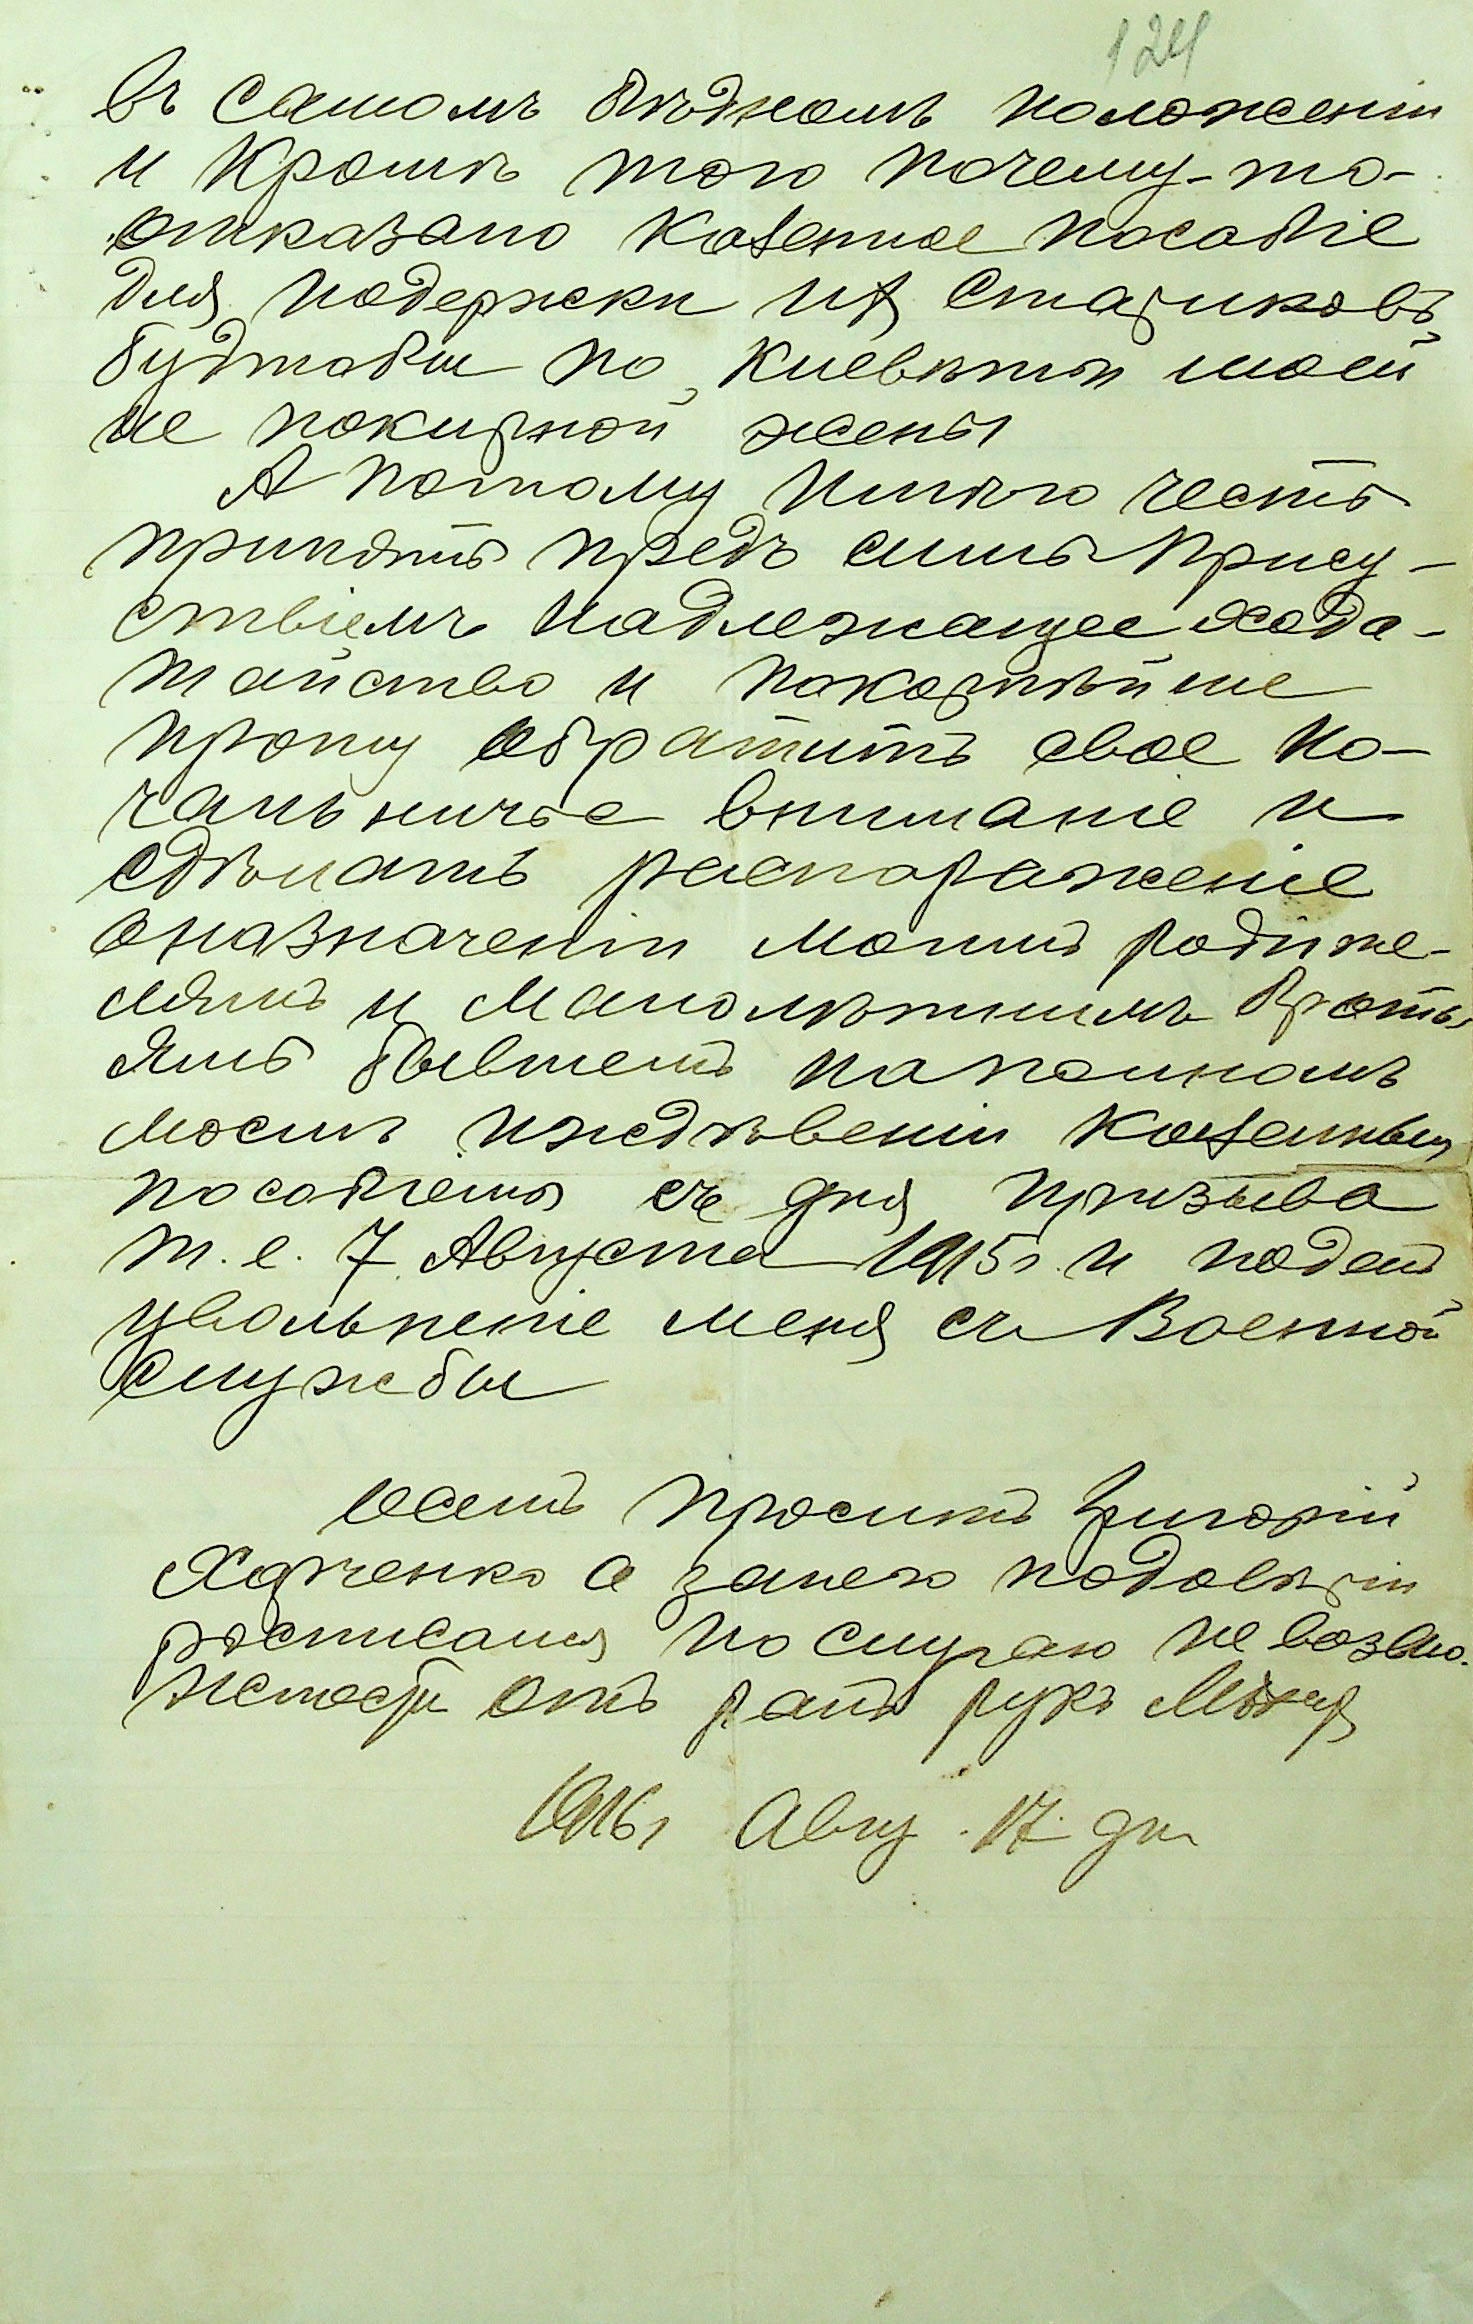 124
въ самомъ бѣдномъ положеніи
и Кромѣ того почему-то-
отказано Казенное пособіе
для подержки их Стариковъ,
будтобы по Киевѣтѣ моей
не покирной жены
А потому Имѣю честь
принять предъ симъ Прису-
ствіемъ надлежащее хода-
тайство и покорнѣйше
прошу обратить свое На-
чальничье вниманіе и
сдѣлать распоряженіе
о назначеніи моимъ родите-
лямъ и малолѣтнимъ Брать-
ямъ бывшемъ на полномъ
моемъ ижедѣвеніи Казенным
пособіемъ съ дня призыва
т. е. 7 Августа 1915 г. и
увольненіе меня съ Военной
службы
осемъ проситъ Григорій
Харченко а занего
росписался по случаю не возмо-
жности отъ ранъ рукъ
1916 г Авгу. 17 дн